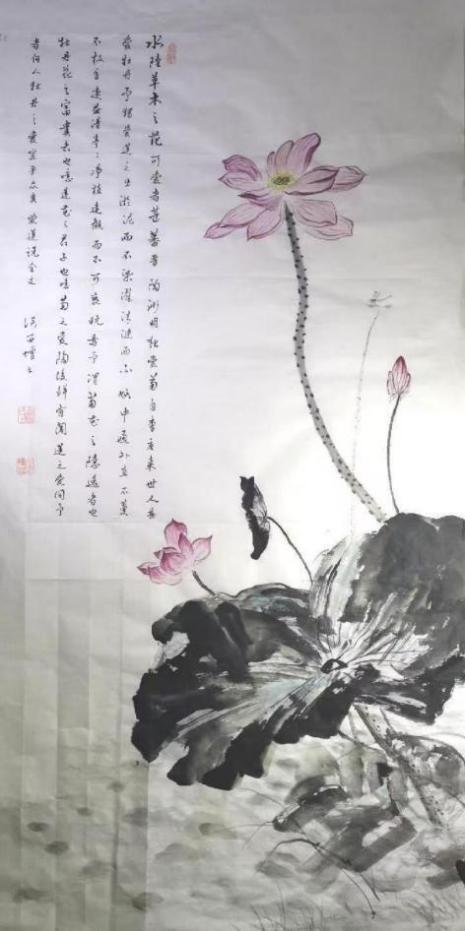 水陸草木之花可愛者甚蕃晋陶淵明独愛菊自李唐来世人甚
愛牡丹予独愛蓮之出淤泥而不染濯清漣而不妖中通外直不蔓
不枝香遠益清亭々净植遠觀而不可褻玩焉予謂菊花之隱逸者也
牡丹花之富貴者也噫蓮花之君子也噫菊之愛陶後鮮有聞蓮之愛同予
者何人牡丹之愛宜乎众矣 愛蓮説全文